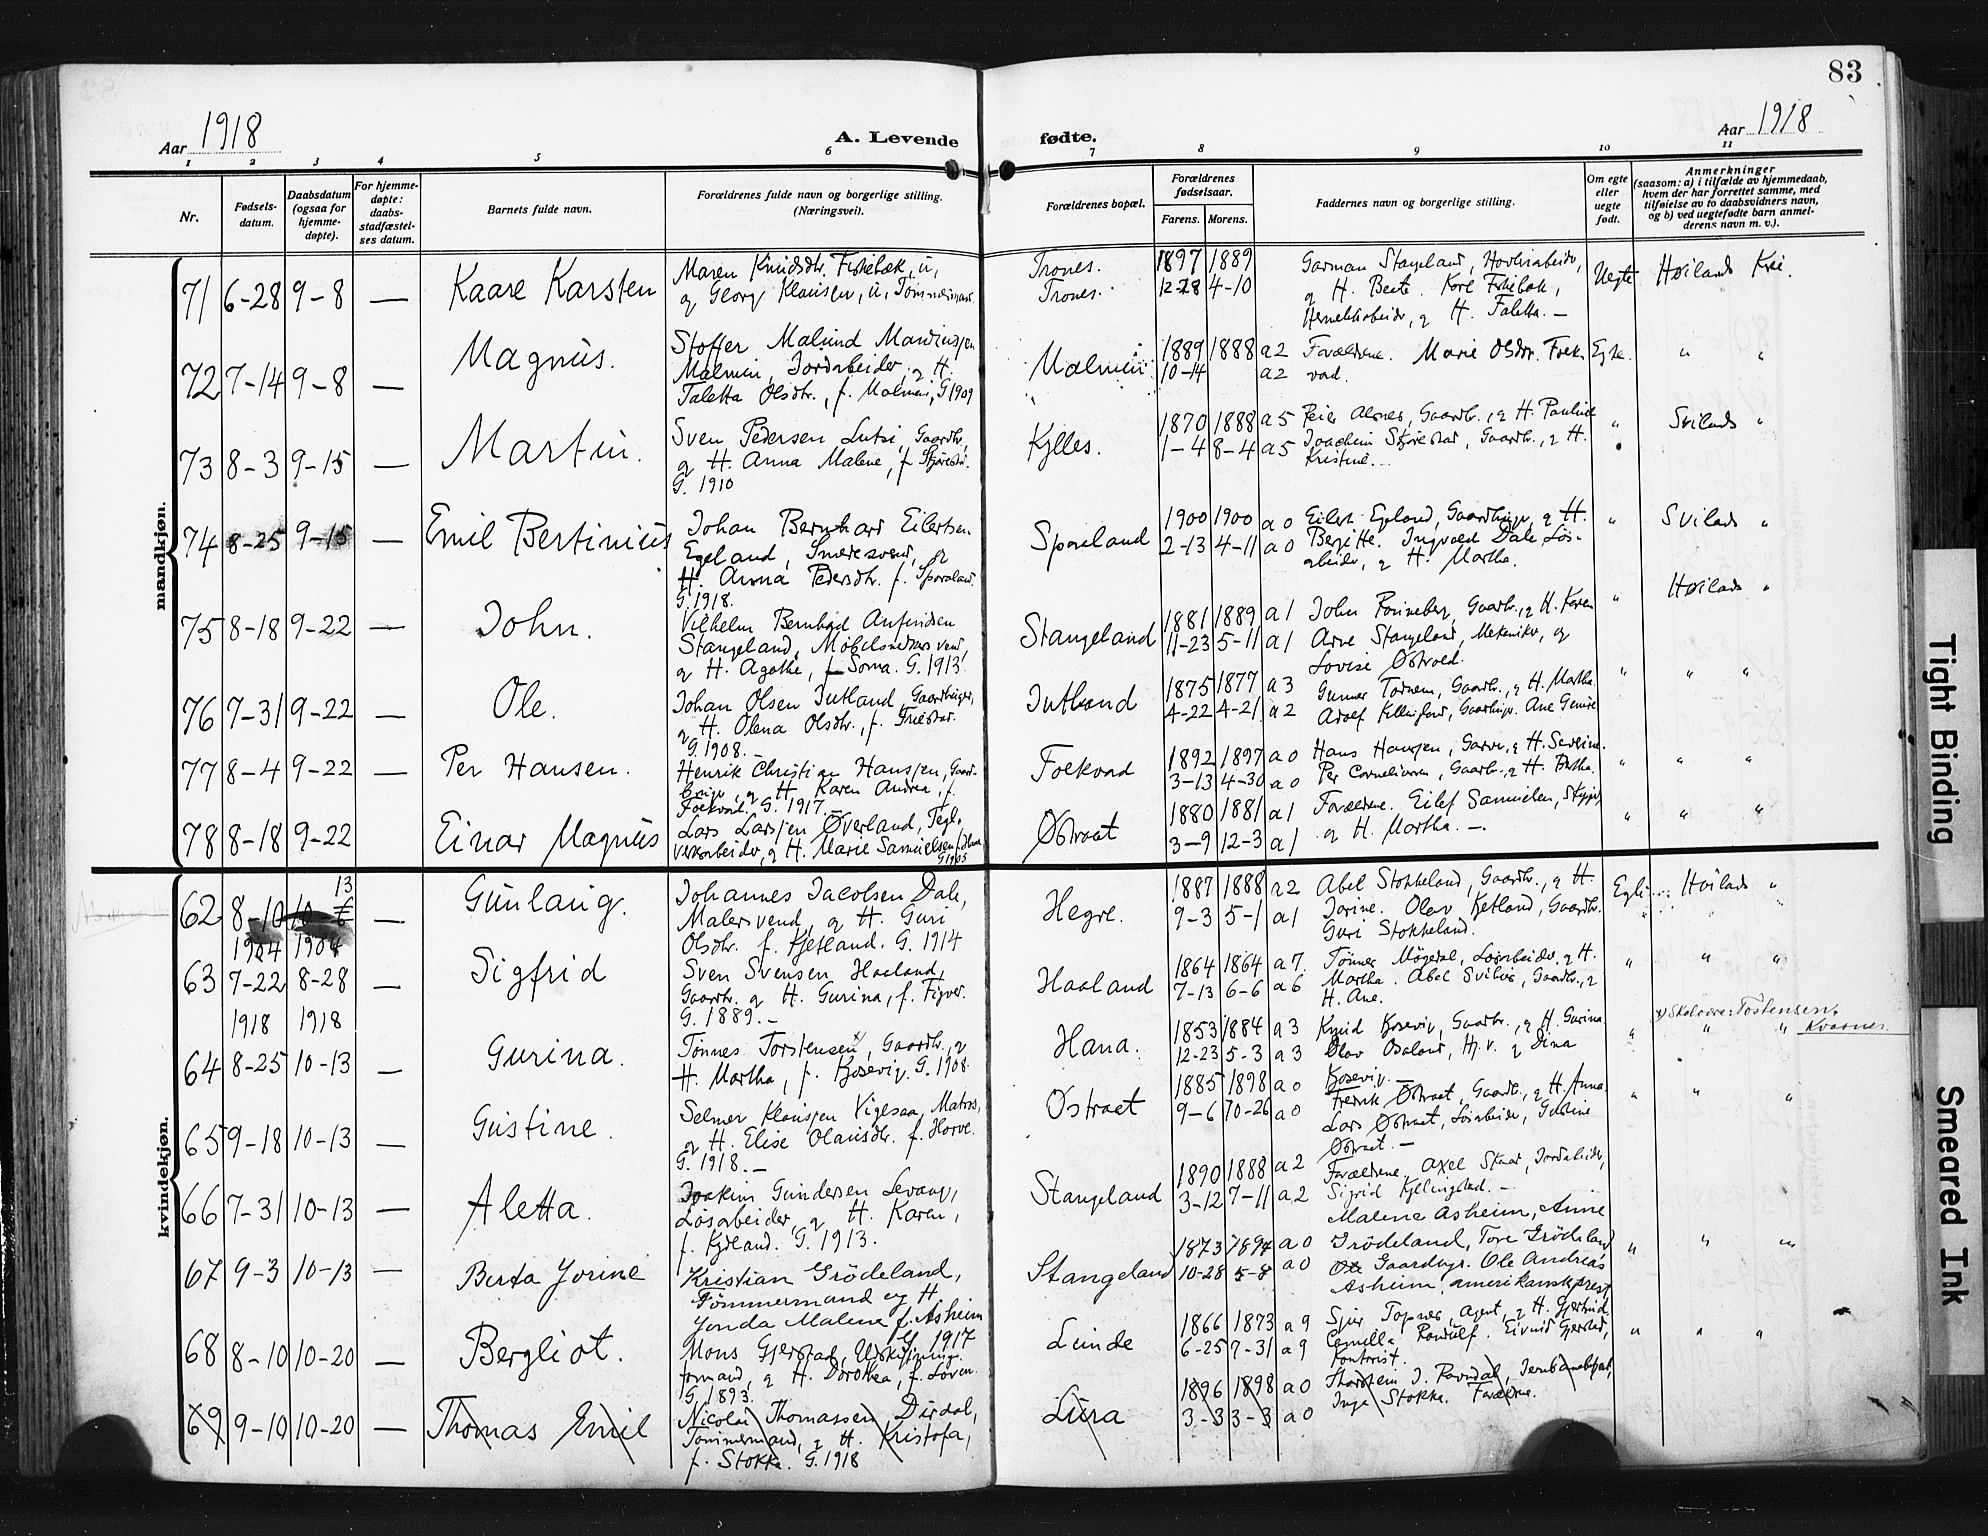 83
Aar 1918
A. Levende
fødte.
Aar 1918
1 2 3 4 5 6 7 8 9 10 11
Nr.
Fødsels-
datum.
Daabsdatum
(ogsaa for
hjemme-
døpte).
For hjemme-
døpte:
daabs-
stadfæstel-
ses datum.
Barnets fulde navn.
Forældrenes fulde navn og borgerlige stilling.
(Næringsvei).
Forældrenes bopæl.
Forældrenes
fødselsaar.
Farens. Morens.
Faddernes navn og borgerlige stilling.
Om egte
eller
uegte
født.
Anmerkninger
(saasom: a) i tilfælde av hjemmedaab,
hvem der har forrettet samme, med
tilføielse av to daabsvidners navn,
og b) ved uegtefødte barn anmel-
derens navn m. v.).
mandkjøn.
71 6-28 9-8 — Kaare Karsten
Maren Knudsdtr. Fiskebæk, u,
og Georg Klausen, u, Tømmermand
Trones.
Trones.
1897 1889
12-28 4-10
Garman Stangeland,
og H. Berte. Kore Fiskebæk,
og H. Taletta. —
Uegte
Høilands Kri.
72 7-14 9-8 — Magnus.
Stoffer Malund Mardinusen
Malmin, Jordarbeider, og H.
Taletta Olsdtr., f. Malmin, G 1909
Malmin
1889 1888 a 2
10-14 a 2
Forældrene. Marie Olsdtr. Foek
vad.
Egte.
" "
73 8-3 9-15 — Martin.
Sven Pedersen Lutsi, Gaardbr,
og H. Anna Malene, f. Skjørestad.
G. 1910
Kylles.
1870 1888 a 5
1-4 8-4 a 5
Peier Alsnes, Gaardbr., og H. Pauline
Joachim Skjørestad, Gaardbr., og H.
Kristine. —
" Svilads "
74 8-25 9-15 — Emil Bertinius
Johan Bernhard Eilertsen
Egeland, Smedesvend, og
H. Anna Pedersdtr. f. Sporaland.
G. 1918.
Sporaland
1900 1900 a 0
2-13 4-11 a 0
Eilert Egeland, Gaardbruger, og H.
Bergitte. Ingvald Dale Løs-
arbeider, og H. Martha.
" Svilads "
75 8-18 9-22 — John.
Vilhelm Bernhard Anfindsen
Stangeland, Møbelsnedkersvend,
og H. Agathe, f. Soma. G. 1913
Stangeland
1881 1889 a 1
11-23 5-11 a 1
John Rønneberg, Gaardbr., og H. Karen
Arne Stangeland, Mekaniker, og
Lovise Østvold.
" Høilads "
76 7-31 9-22 — Ole.
Johan Olsen Jutland, Gaardbruger,
og H. Olena Olsdtr., f. Friestad.
G. 1908. —
Jutland
1875 1877 a 3
4-22 4-21 a 2
Gunnar Tornem, Gaardbr., og H. Martha.
Adolf Kyllingstad, Gaardbruger. Ane
" " "
77 8-4 9-22 — Per Hansen.
Henrik Christian Hansen, Gaard-
bruger, og H. Karen Andrea, f.
Foekvad G. 1917.
Foekvad
1892 1897 a 0
3-13 4-30 a 0
Hans Hansen, Garver, og H. Severine.
Per Corneliussen, Gaardbr., og H. Bertha.
" " "
78 8-18 9-22 Einar Magnus
Lars Larsen Øverland, Tegl-
verksarbeider, og H. Marie Samuelsen f. Hana
G 1905
Østraat
1880 1881 a 1
3-9 12-3 a 1
Forældrene. Eilef Samuelsen, Skipper
og H. Martha. —
" " "
kvindekjøn.
62 8-10 10-13 — Gunlaug.
Johannes Jacobsen Dale,
Malersvend, og H. Guri
Olsdtr. f. Kjetland. G. 1914
Hegre.
1887 1888 a 2
9-3 5-1 a 1
Abel Stokkeland, Gaardbr., og H.
Jorine. Olav Ketland, Gaardbr.
Guri Stokkeland.
Egte Høilads "
1904 1904
63 7-22 8-28 — Sigfrid
Sven Svensen Haaland,
Gaardbr. og H. Gurina, f. Figver.
G. 1889. —
Haaland
1864 1864 a 7
7-13 6-6 a 6
Tønnes Møgedal, Løsarbeider, og H.
Martha. Abel Svihus, Gaardbr., og
H. Ane.
" " "
1918 1918
64 8-25 10-13 — Gurina.
Tønnes Torstensen x), Gaardbr., og
H. Martha, f. Kosevig. G. 1908
Hana.
1853 1884 a 3
12-23 5-3 a 3
Knud Kosevig, Gaardbr., og H. Gurina
Olav Osaland, Hj. v. og Dina
Kosevig. —
x) Skal være: Tostensen,
Kvasnes
" " "
65 9-18 10-13 — Gustine.
Selmer Klausen Vigesaa, Matros,
og H. Elise Olausdtr. f. Horve.
G. 1918. —
Østraat
1885 1898 a 0
9-6 10-26 a 0
Fredrik Østraat, Gaardbr., og H. Anna
Lars Østraat, Løsarbeider, Gustine
Østraat. —
" " "
66 7-31 10-13 — Aletta.
Joakim Gundersen Levang,
Løsarbeider, og H. Karen,
f. Kydland. G. 1913.
Stangeland
1890 1888 a 2
3-12 7-11 a 2
Forældrene, Axel Skaar, Jordarbeider,
Sigrid Kyllingstad. —
67 9-3 10-13 — Berta Jorine
Kristian Grödeland,
Tömmermand og H.
Jonda Malene f. Asheim
G. 1917
Stangeland
1873 1894 a 0
10-28 5-8 a 0
Malene Asheim, Anne
Grödeland, Tore Grödeland
Gaardbgr. Ole Andreas
Asheim, amerikansk prest
" " "
68 8-10 10-20 — Bergliot.
Mons Gjerstad, Utskiftnings-
formand, og H. Dorothea, f. Løven
G. 1893.
Lunde
1866 1873 a 9
6-25 7-31 a 9
Sjur Topnes, Agent, og H. Gjertrud
Camilla Randulf. Eivind Gjerstad,
Kontorist.
" " "
69 9-10 10-20 — Thomas Emil
Nicolai Thomassen Dirdal,
Tømmermand, og H. Kristofa,
f. Stokka. G. 1918
Lura
1896 1898 a 0
3-3 3-3 a 0
Thorstein J. Ravndal,
Inga Stokka. Forældrene.
Tight Binding
Smeared Ink